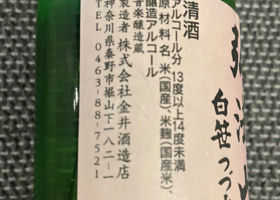 白笹つづ
清酒
アルコール分 13度以上14度未満
原材料名 米(国産)、米麹(国産米)、
醸造アルコール
音楽醸造蔵
製造者 株式会社金井酒造店
神奈川県秦野市堀山下一八二-一
TEL 0463-88-7521